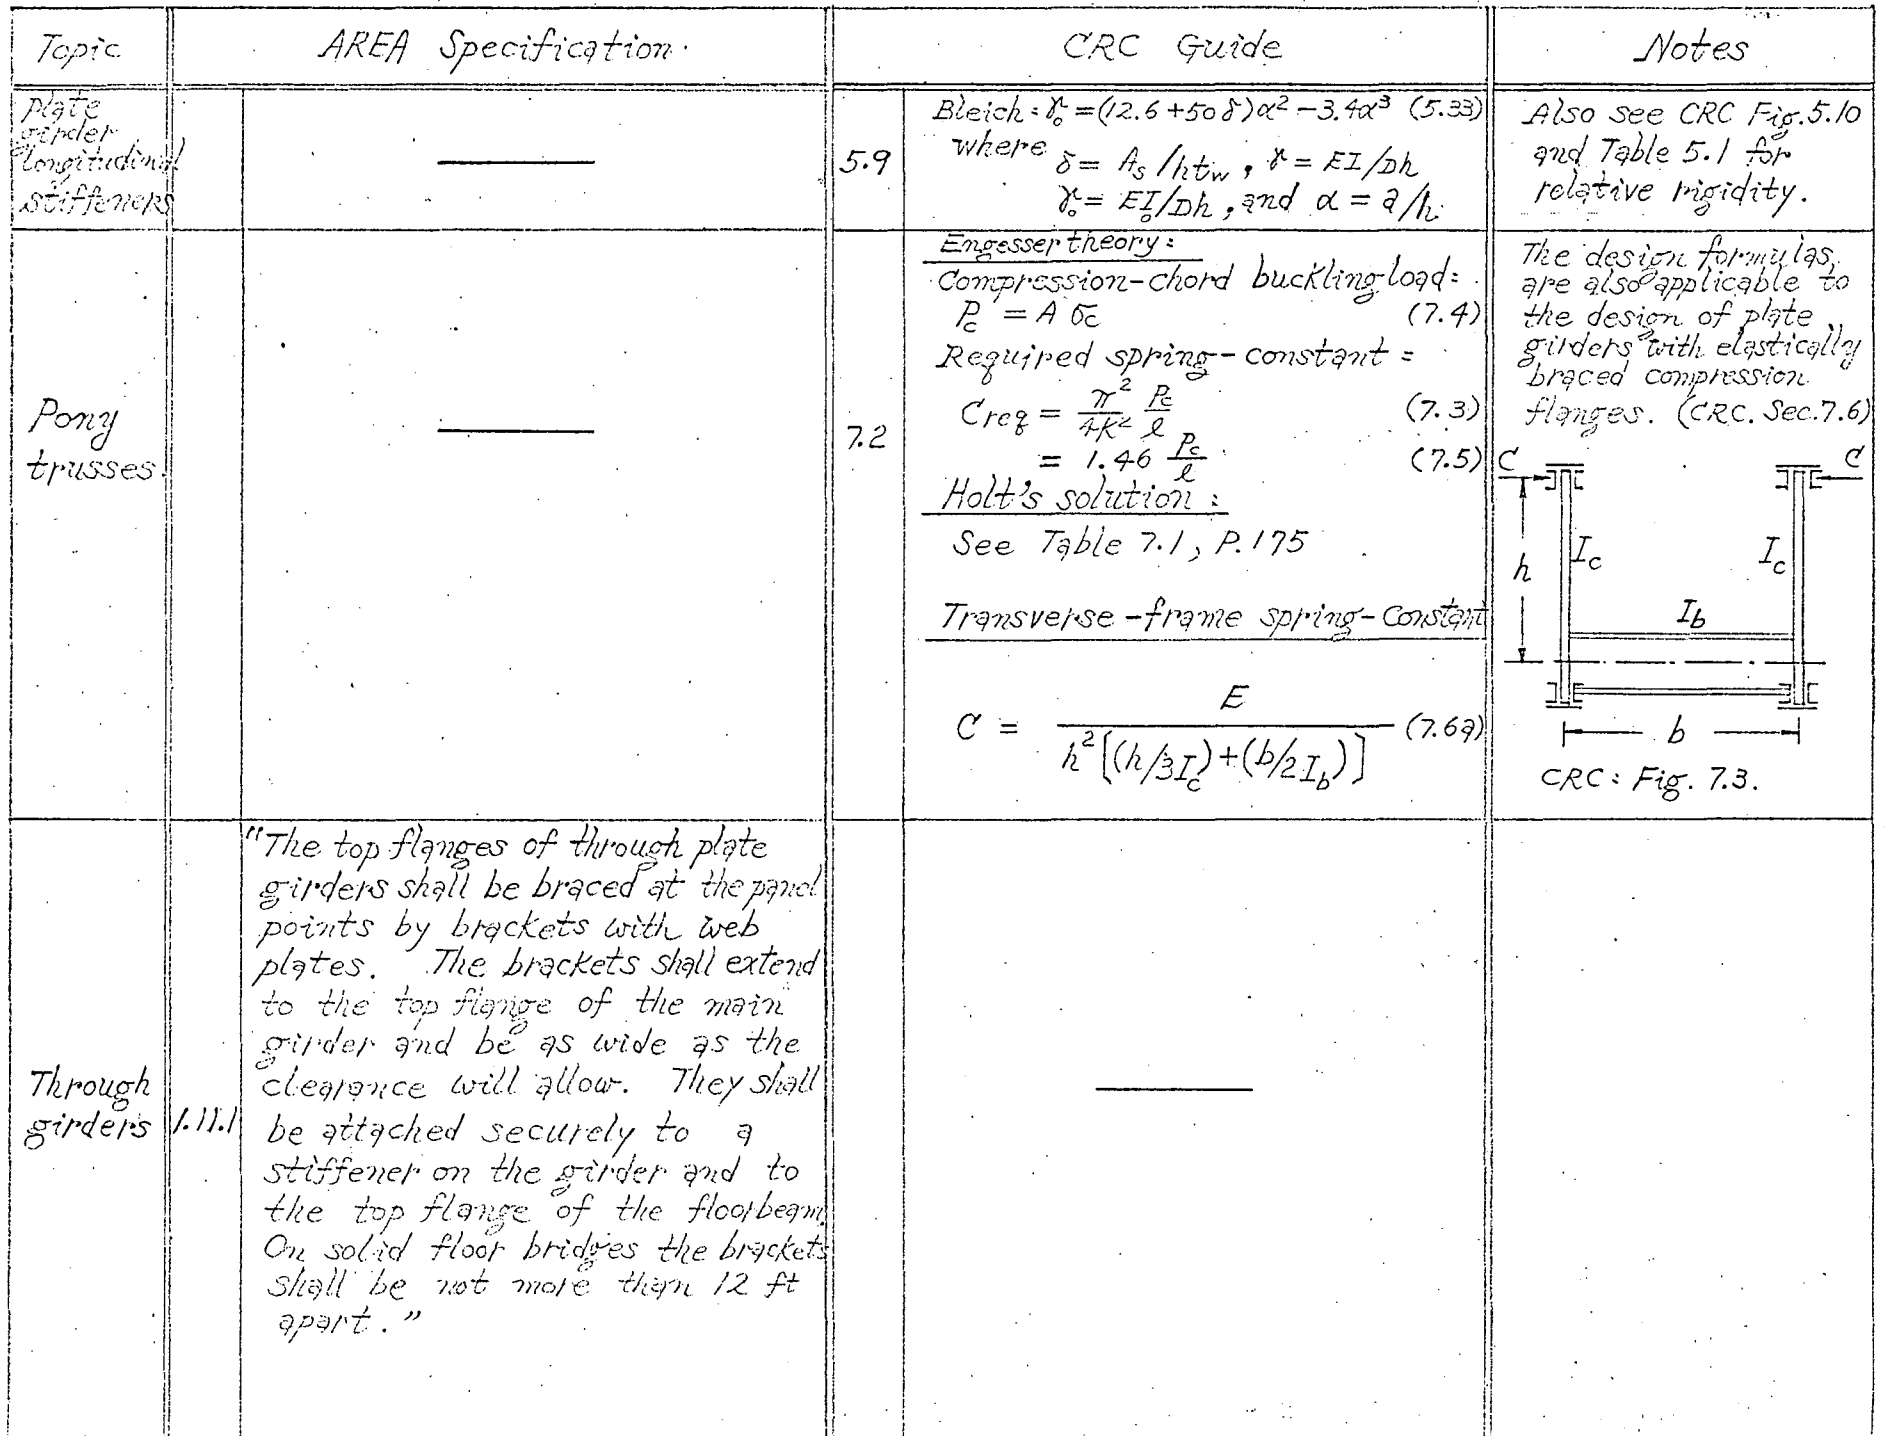 Topic
AREA Specification.
CRC Guide
Notes
Plate
girder
longitudinal
stiffeners
5.9
Bleich: γ₀ = (12.6 + 50 δ)α² − 3.4α³ (5.33)
where δ = Aₛ/htw, γ = EI/Dh
γ₀ = EI₀/Dh, and α = a/h.
Also see CRC Fig. 5.10
and Table 5.1 for
relative rigidity.
Pony
trusses.
7.2
Engesser theory:
Compression-chord buckling load:
Pc = A σc (7.4)
Required spring-constant:
Creq = π²/4K² Pc/l (7.3)
= 1.46 Pc/l (7.5)
Holt's solution:
See Table 7.1, P.175
Transverse-frame spring-Constant
C = E / h²[(h/3Ic)+(b/2Ib)] (7.6a)
The design formulas,
are also applicable to
the design of plate
girders with elastically
braced compression
flanges. (CRC. Sec. 7.6)
C C
h Ic Ic
Ib
b
CRC: Fig. 7.3.
Through
girders
1.11.1
"The top flanges of through plate
girders shall be braced at the panel
points by brackets with web
plates. The brackets shall extend
to the top flange of the main
girder and be as wide as the
clearance will allow. They shall
be attached securely to a
stiffener on the girder and to
the top flange of the floorbeam.
On solid floor bridges the brackets
shall be not more than 12 ft
apart."